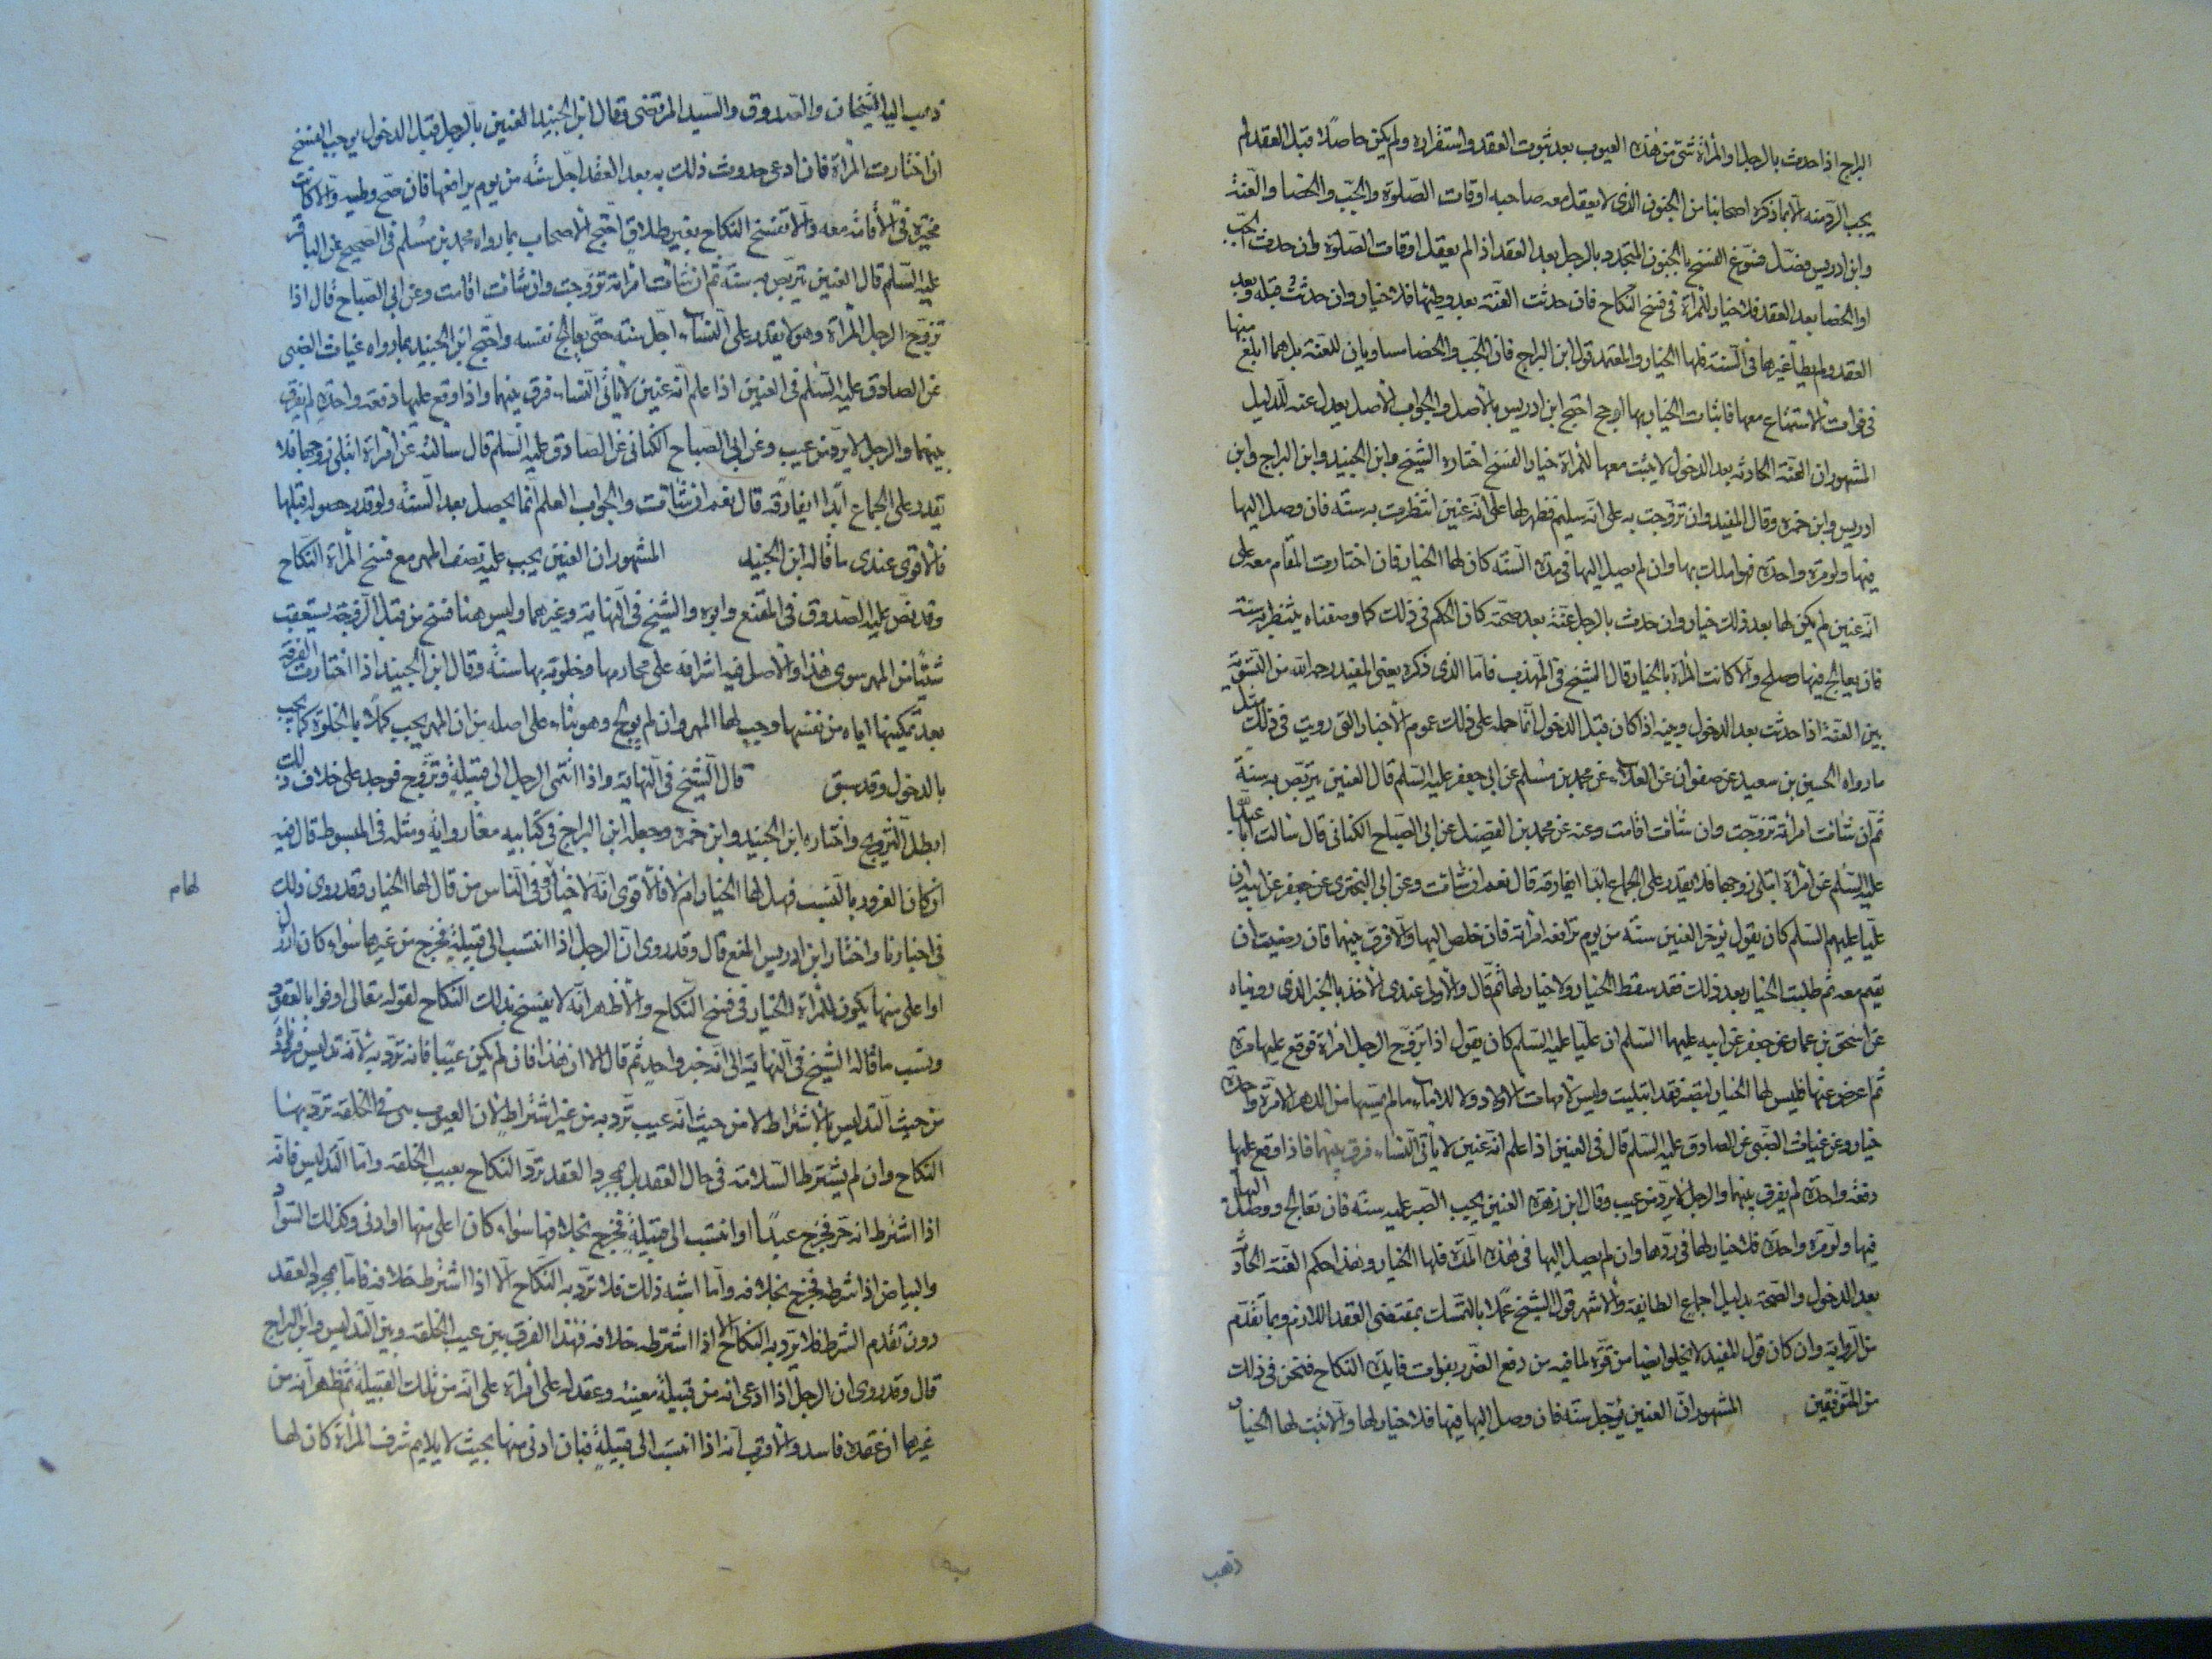 البراج اذا حدث بالرجل او المرأة شئ من هذه العيوب بعد ثبوت العقد واستقراره ولم يكن حاصلا قبل العقد لم
يجب الرد منه الا بما ذكره اصحابنا من الجنون الذى لا يعقل معه صاحبه اوقات الصلوة والجب والخصا والعنة
وابن ادريس فصل فسوغ الفسخ بالجنون المتجدد بالرجل بعد العقد اذا لم يعقل اوقات الصلوة وان حدث الجب
او الخصا بعد العقد فلا خيار للمرأة فى فسخ النكاح فان حدثت العنة بعد وطئها فلا خيار وان حدثت قبله وبعد
العقد ولم يطأ غيرها فى السنة فلها الخيار والمعتمد قول ابن البراج فان الجب والخصا مساويان للعنة بل هما ابلغ منها
فى فوات الاستمتاع معها فاثبات الخيار بهما ارجح احتج ابن ادريس بالاصل والجواب الاصل يعدل عنه للدليل
المشهور ان العنة الحادثه بعد الدخول لا يثبت معها للمرأة خيار الفسخ اختاره الشيخ وابن الجنيد وابن البراج وابن
ادريس وابن حمزه وقال المفيد وان تزوجت به على انه سليم فظهر لها على انه عنين انتظرت به سنة فان وصل اليها
فيها ولو مرة واحدة فهو املك بها وان لم يصل اليها فى مدة السنه كان لها الخيار فان اختارت المقام معه على
انه عنين لم يكن لها بعد ذلك خيار وان حدث بالرجل عنة بعد صحته كان الحكم فى ذلك كما وصفناه ينتظر به سنة
فان يعالج فيها وصلح والا كانت المرأة بالخيار قال الشيخ فى المهذب فاما الذى ذكره يعنى المفيد رحمه الله من التسوية
بين العنة اذا حدثت بعد الدخول وبينه اذا كان قبل الدخول انما حمله على ذلك عموم الاخبار التى رويت فى ذلك مثل
ما رواه الحسين بن سعيد عن صفوان عن العلاء عن محمد بن مسلم عن ابى جعفر عليه السلم قال العنين يتربص به سنة
ثم ان شائت امرأته تزوجت وان شائت اقامت وعنه عن محمد بن الفضيل عن ابى الصباح الكنانى قال سالت ابا عبدالله
عليه السلم عن امرأة ابتلى زوجها فلا يقدر على الجماع ابدا ايفارقه قال نعم ان شائت وعن ابى البخترى عن جعفر عن ابيه ان
عليا عليهم السلم كان يقول يؤخر العنين سنة من يوم ترافعه امرأته فان خلص اليها والا فرق بينهما فان رضيت ان
يقيم معه ثم طلبت الخيار بعد ذلك فقد سقط الخيار ولا خيار لها ثم قال والاولى عندى الاخذ بالخبر الذى رويناه
عن اسحق بن عمار عن جعفر عن ابيه عليهما السلم ان عليا عليه السلم كان يقول اذا تزوج الرجل امرأة فوقع عليها مرة
ثم اعرض عنها فليس لها الخيار لتصبر فقد ابتليت وليس لامهات الاولاد ولا للاماء ما لم يمسها من الدهر الا مرة واحدة
خيار وعن غياث الضبى عن الصادق عليه السلم قال فى العنين اذا علم انه عنين لا يأتى النساء فرق بينهما فاذا وقع عليها
دفعة واحدة لم يفرق بينهما والرجل لا يرد من عيب وقال ابن زهرة العنين يجب الصبر عليه سنة فان تعالج ووصل اليها
فيها ولو مرة واحدة فلا خيار لها فى ردها وان لم يصل اليها فى هذه المدة فلها الخيار وهذا حكم العنة الحادث
بعد الدخول والصحة بدليل اجماع الطايفة والاشهر قول الشيخ عملا بالتمسك بمقتضى العقد اللازم وبما تقدم
من الرواية وان كان قول المفيد لا يخلوا ايضا من قوة لما فيه من دفع الضرر بفوات فايدة النكاح فنحن فى ذلك
من المتوقفين المشهور ان العنين يؤجل سنة فان وصل اليها فيها فلا خيار لها والا ثبت لها الخيار
ذهب
ذهب اليه الشيخان والصدوق والسيد المرتضى وقال ابن الجنيد العنين بالرجل قبل الدخول يوجب الفسخ
ان اختارت المرأة فان ادعى حدوث ذلك به بعد العقد اجل سنة من يوم يرافعها فان صح وطيه والا كانت
مخيرة فى الاقامة معه والا تفسخ النكاح بغير طلاق احتج الاصحاب بما رواه محمد بن مسلم فى الصحيح عن الباقر
عليه السلم قال العنين يتربص به سنة ثم ان شائت امرأته تزوجت وان شائت اقامت وعن ابى الصباح قال اذا
تزوج الرجل المرأة وهو لا يقدر على النساء اجل سنة حتى يعالج نفسه واحتج ابن الجنيد بما رواه غياث الضبى
عن الصادق عليه السلم فى العنين اذا علم انه عنين لا يأتى النساء فرق بينهما واذا وقع عليها دفعة واحدة لم يفرق
بينهما والرجل لا يرد من عيب وعن ابى الصباح الكنانى عن الصادق عليه السلم قال سالته عن امرأة ابتلى زوجها فلا
يقدر على الجماع ابدا ايفارقه قال نعم ان شائت والجواب العلم انما يحصل بعد السنة ولو قدر حصوله قبلها
فالاقوى عندى ما قاله ابن الجنيد المشهور ان العنين يجب عليه نصف المهر مع فسخ المرأة النكاح
وقد نص عليه الصدوق فى المقنع وابوه والشيخ فى النهاية وغيرهما وليس هنا فسخ من قبل الزوجة يستعقب
شيئا من المهر سوى هذا والاصل فيه اشرافه على محارمها وخلوته بها سنة وقال ابن الجنيد اذا اختارت الفرقة
بعد تمكينها اياه من نفسها وجب لها المهر وان لم يولج وهو بناء على اصله من ان المهر يجب كملا بالخلوة كما يجب
بالدخول وقد سبق قال الشيخ فى النهاية واذا انتمى الرجل الى قبيلة وتزوج فوجد على خلاف ذلك
ابطل التزويج واختاره ابن الجنيد وابن حمزه وجعله ابن البراج فى كتابيه معا رواية ومثله فى المبسوط قال فيه
ان كان الغرور بالنسب فهل لها الخيار ام لا فالاقوى انه لا خيار وفى الناس من قال لها الخيار وقد روى ذلك
فى اخبارنا واختار ابن ادريس المنع قال وقد روى ان الرجل اذا انتسب الى قبيلة فخرج من غيرها سواء كان ارذل
او اعلى منها يكون للمرأة الخيار فى فسخ النكاح والاظهر انه لا ينفسخ بذلك النكاح لقوله تعالى اوفوا بالعقود
ونسب ما قاله الشيخ فى النهاية الى انه خبر واحد ثم قال الا ان هذا فان لم يكن عيبا فانه ترد به لانه تدليس
من حيث التدليس بالاشتراط لا من حيث انه عيب ترد به من غير اشتراط لان العيوب هى فى الخلقة ترد بها
النكاح وان لم يشترط السلامة فى حال العقد بل بمجرد العقد ترد النكاح بعيب الخلقة واما التدليس فانه
اذا اشترط انه حر فخرج عبدا او انتسب الى قبيلة فخرج بخلافها سواء كان اعلى منها او ادنى وكذلك السواد
والبياض اذا شرطه فخرج بخلافه وما اشبه ذلك فلا ترد به النكاح الا اذا اشترط خلافه فاما بمجرد العقد
دون تقدم الشرط فلا ترد به النكاح الا اذا اشترطه خلافه فهذا الفرق بين عيب الخلقة وبين التدليس وابن البراج
قال وقد روى ان الرجل اذا ادعى انه من قبيلة معينه وعقد له على امرأة على انه من تلك القبيلة ثم ظهر انه من
غيرها ان عقده فاسد والاقرب انه اذا انتسب الى قبيلة فبان ادنى منها بحيث لا يلايم شرف المرأة كان لها